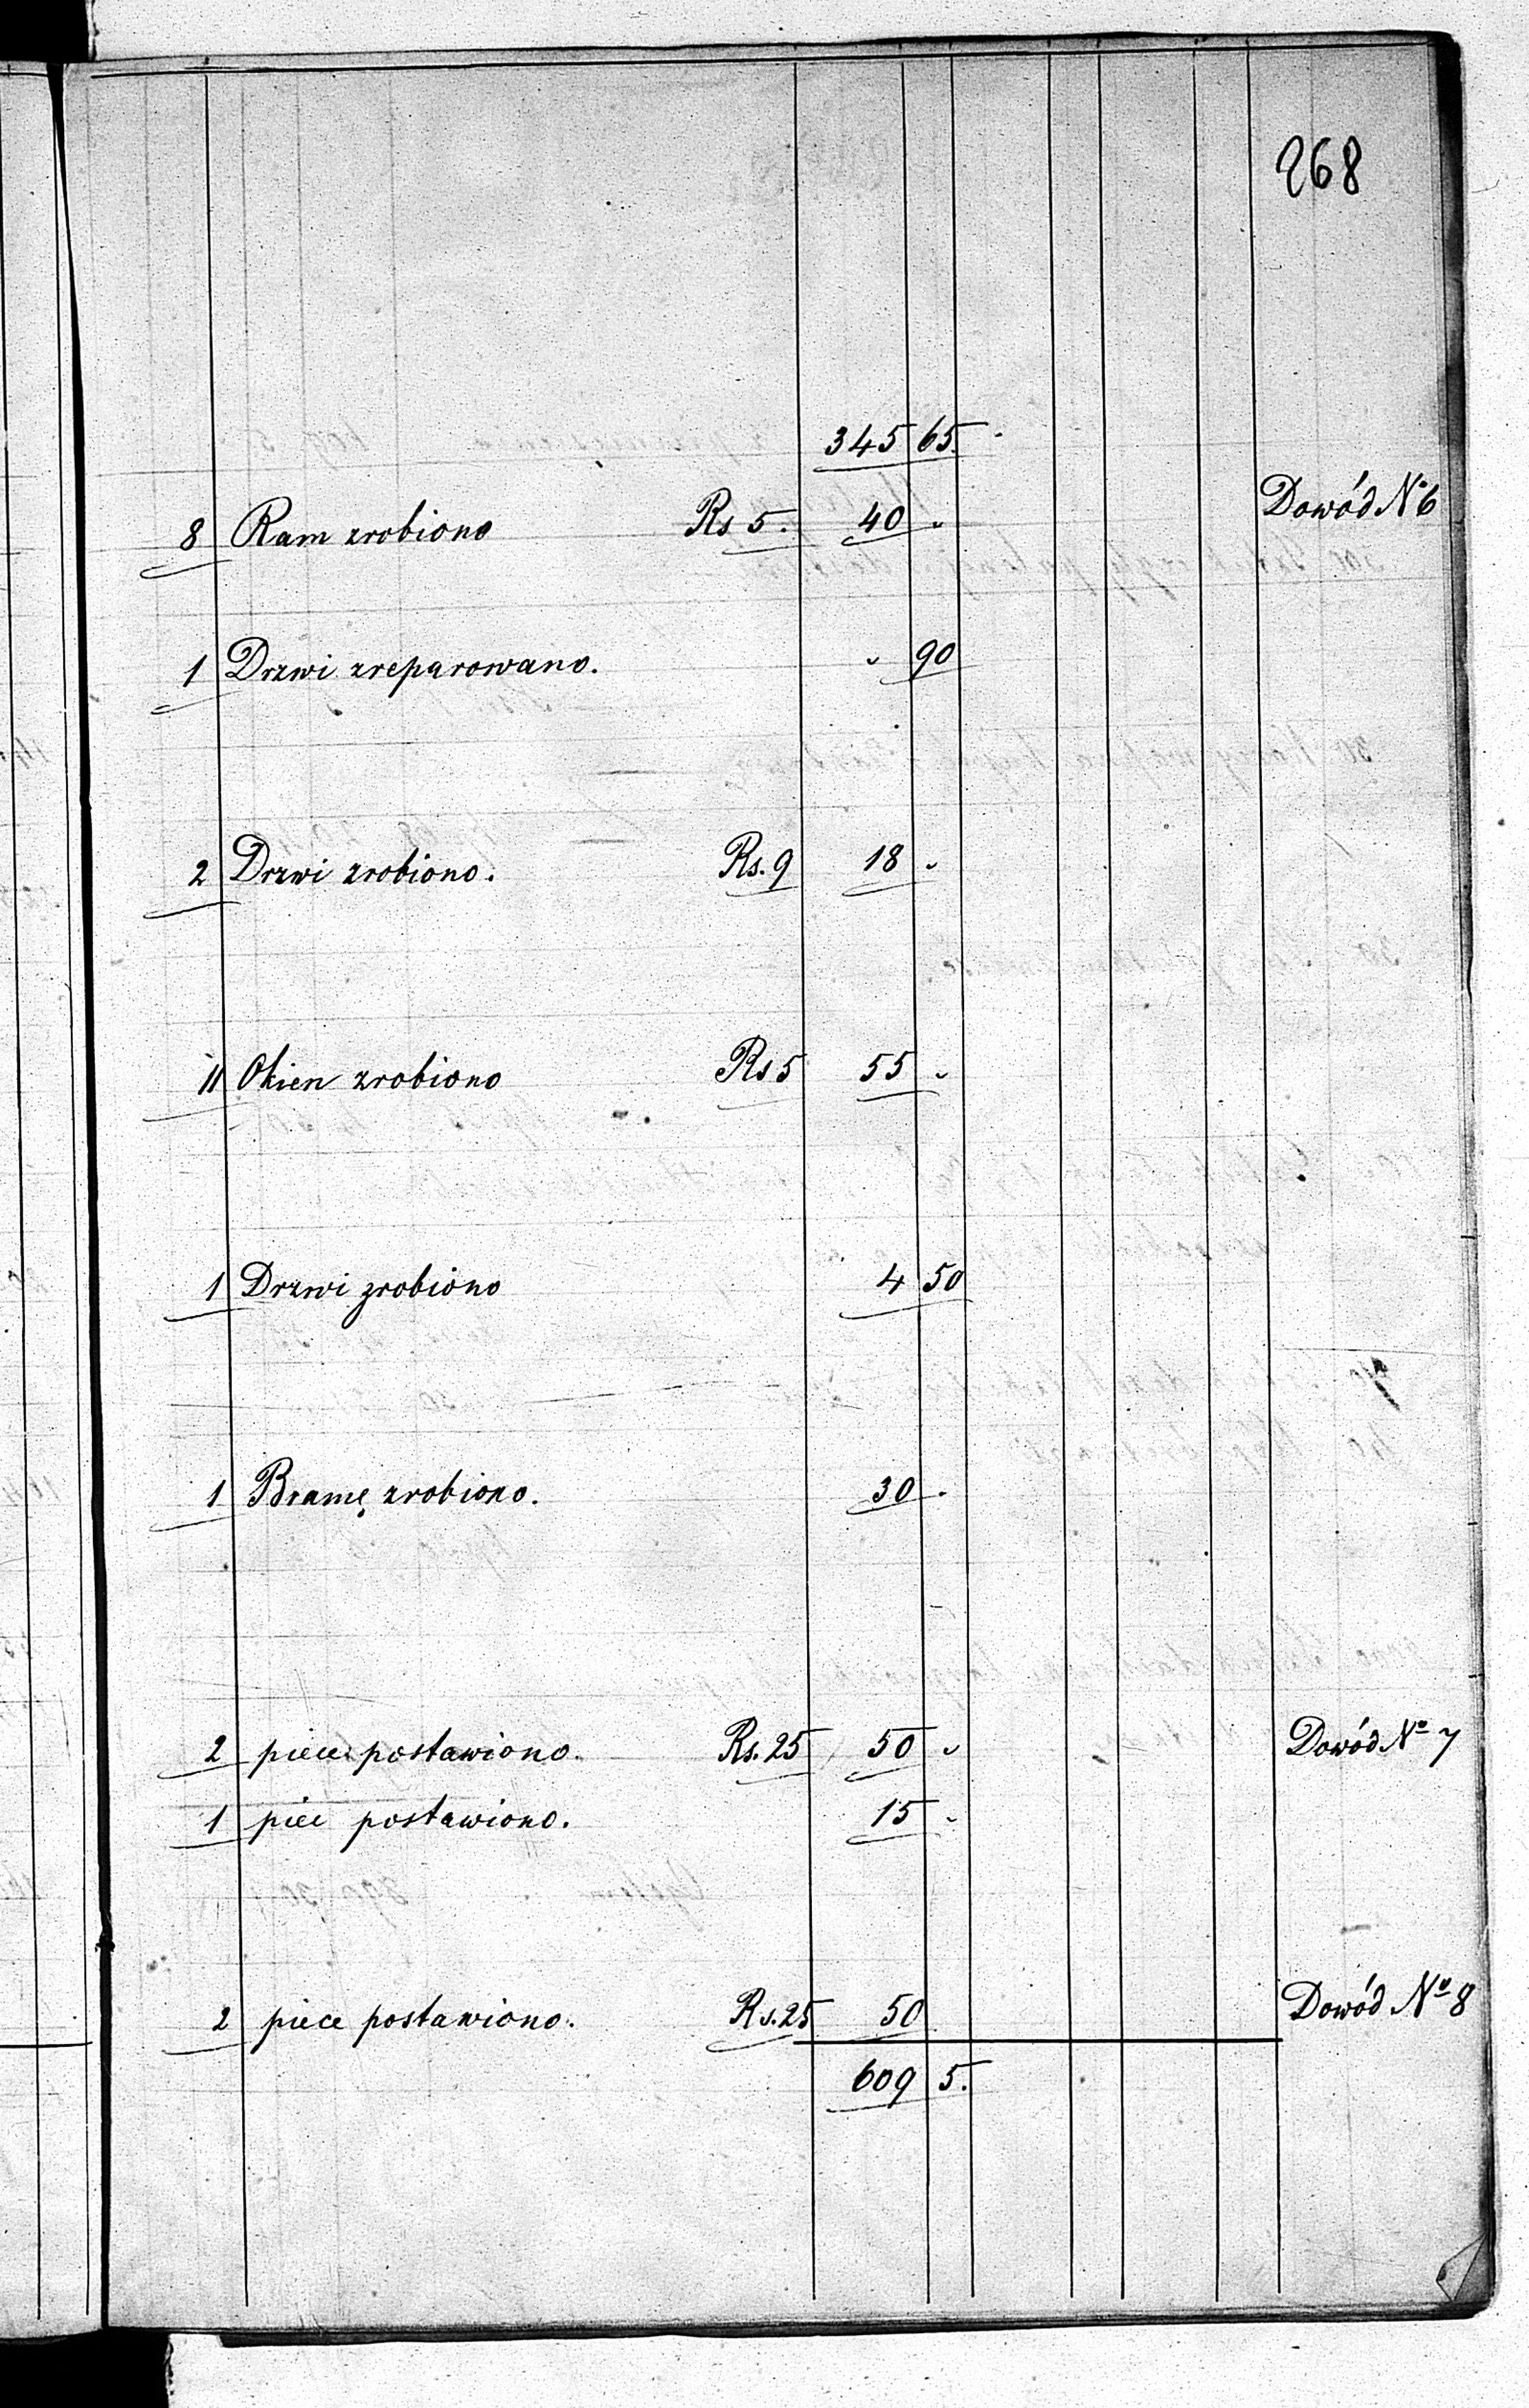 268
345 65.
8 Ram zrobiono Rs 5. 40 „ Dowód No 6
1 Drzwi zreparowano. „ 90
2 Drzwi zrobiono. Rs. 9 18 „
11 Okien zrobiono Rs 5 55 „
1 Drzwi zrobiono 4 50
1 Bramę zrobiono. 30 .
2 piece postawiono. Rs. 25 50 „ Dowód No 7
1 piec postawiono. 15 „
2 piece postawiono. Rs. 25 50 Dowód No 8
609 5.